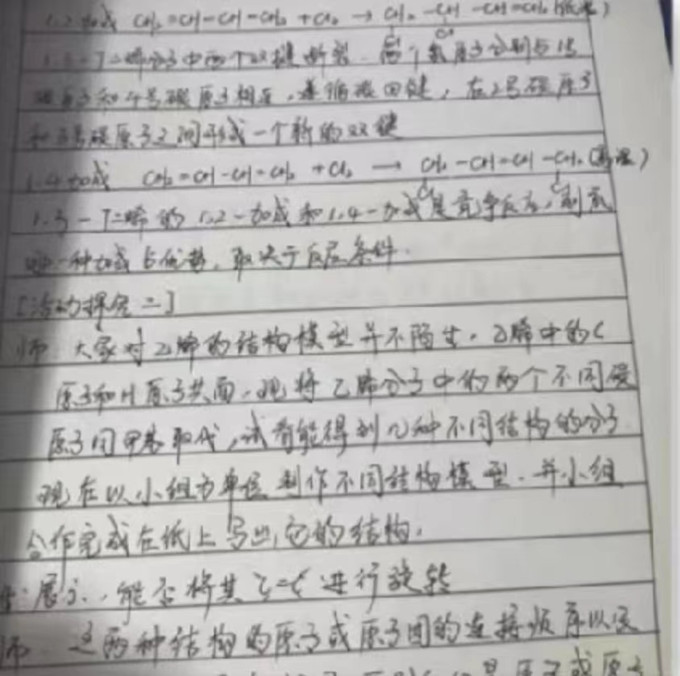 1.2加成 CH₂=CH-CH=CH₂ + Cl₂ → CH₂-CH-CH=CH₂(低温)
Cl Cl
1.3-丁二烯分子中两个双键断裂,两个氯原子分别与1号
碳原子和4号碳原子相连,遵循碳四键,在2号碳原子
和3号碳原子之间形成一个新的双键
1.4加成 CH₂=CH-CH=CH₂ + Cl₂ → CH₂-CH=CH-CH₂(高温)
Cl Cl
1.3-丁二烯的1.2-加成和1.4-加成是竞争反应,到底
哪一种加成占优势,取决于反应条件.
[活动探究二]
师:大家对乙烯的结构模型并不陌生,乙烯中的C
原子和H原子共面,现将乙烯分子中的两个不同碳
原子间甲基取代,试着能得到几种不同结构的分子
现在以小组为单位制作不同结构模型.并小组
合作完成在纸上写出它的结构.
生:展示.能否将其C=C进行旋转
师 这两种结构的原子或原子团的连接顺序以及
原子或原子